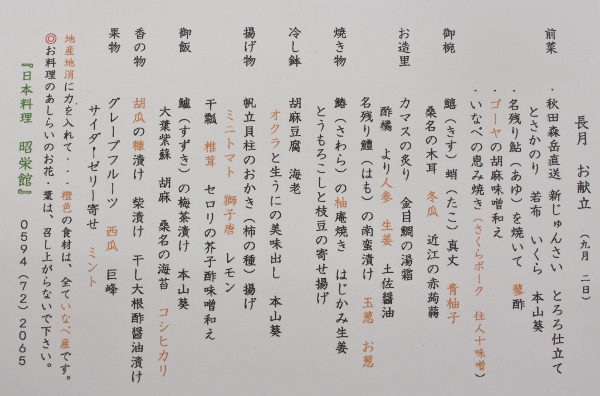 長月 お献立 (九月 二日)
前菜
・秋田森岳直送 新じゅんさい とろろ仕立て
とさかのり 若布 いくら 本山葵
・名残り鮎(あゆ)を焼いて 蓼酢
・ゴーヤの胡麻味噌和え
・いなべの恵み焼き(さくらポーク 住人十味噌)
御椀
鱚(きす)蛸(たこ)真丈 青柚子
桑名の木耳 冬瓜 近江の赤蒟蒻
お造里
カマスの炙り 金目鯛の湯霜
酢橘 より人参 生姜 土佐醤油
名残り鱧(はも)の南蛮漬け 玉葱 お葱
焼き物
鰆(さわら)の柚庵焼き はじかみ生姜
とうもろこしと枝豆の寄せ揚げ
冷し鉢
胡麻豆腐 海老
オクラと生うにの美味出し 本山葵
揚げ物
帆立貝柱のおかき(柿の種)揚げ
ミニトマト 獅子唐 レモン
干瓢 椎茸 セロリの芥子酢味噌和え
御飯
鱸(すずき)の梅茶漬け 本山葵
大葉紫蘇 胡麻 桑名の海苔 コシヒカリ
香の物
胡瓜の糠漬け 柴漬け 干し大根酢醤油漬け
果物
グレープフルーツ 西瓜 巨峰
サイダーゼリー寄せ ミント
地産地消に力を入れて・・・橙色の食材は、全ていなべ産です。
◎お料理のあしらいのお花・葉は、召し上がらないで下さい。
『日本料理 昭栄館』 0594(72)2065